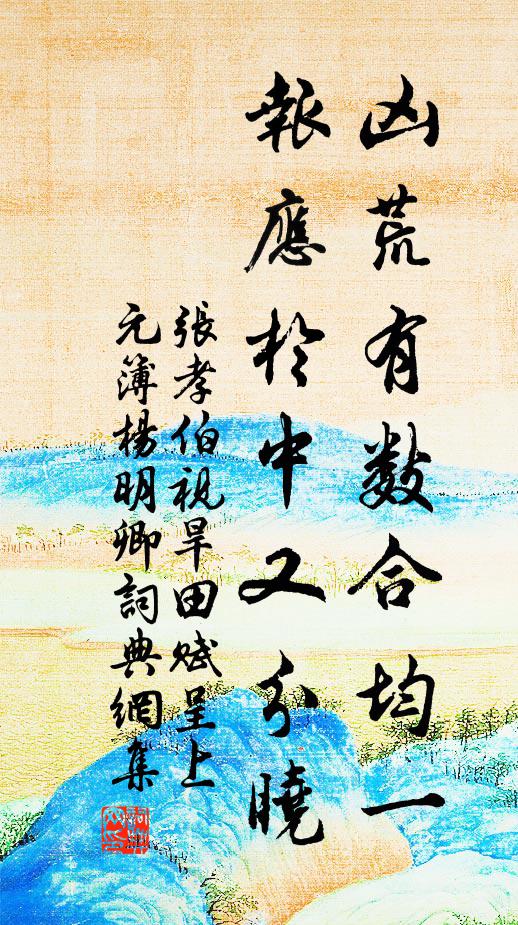 凶荒有数合均一
報應於中又分曉
張孝伯視旱田賦呈上
元簿楊明卿詞典網集